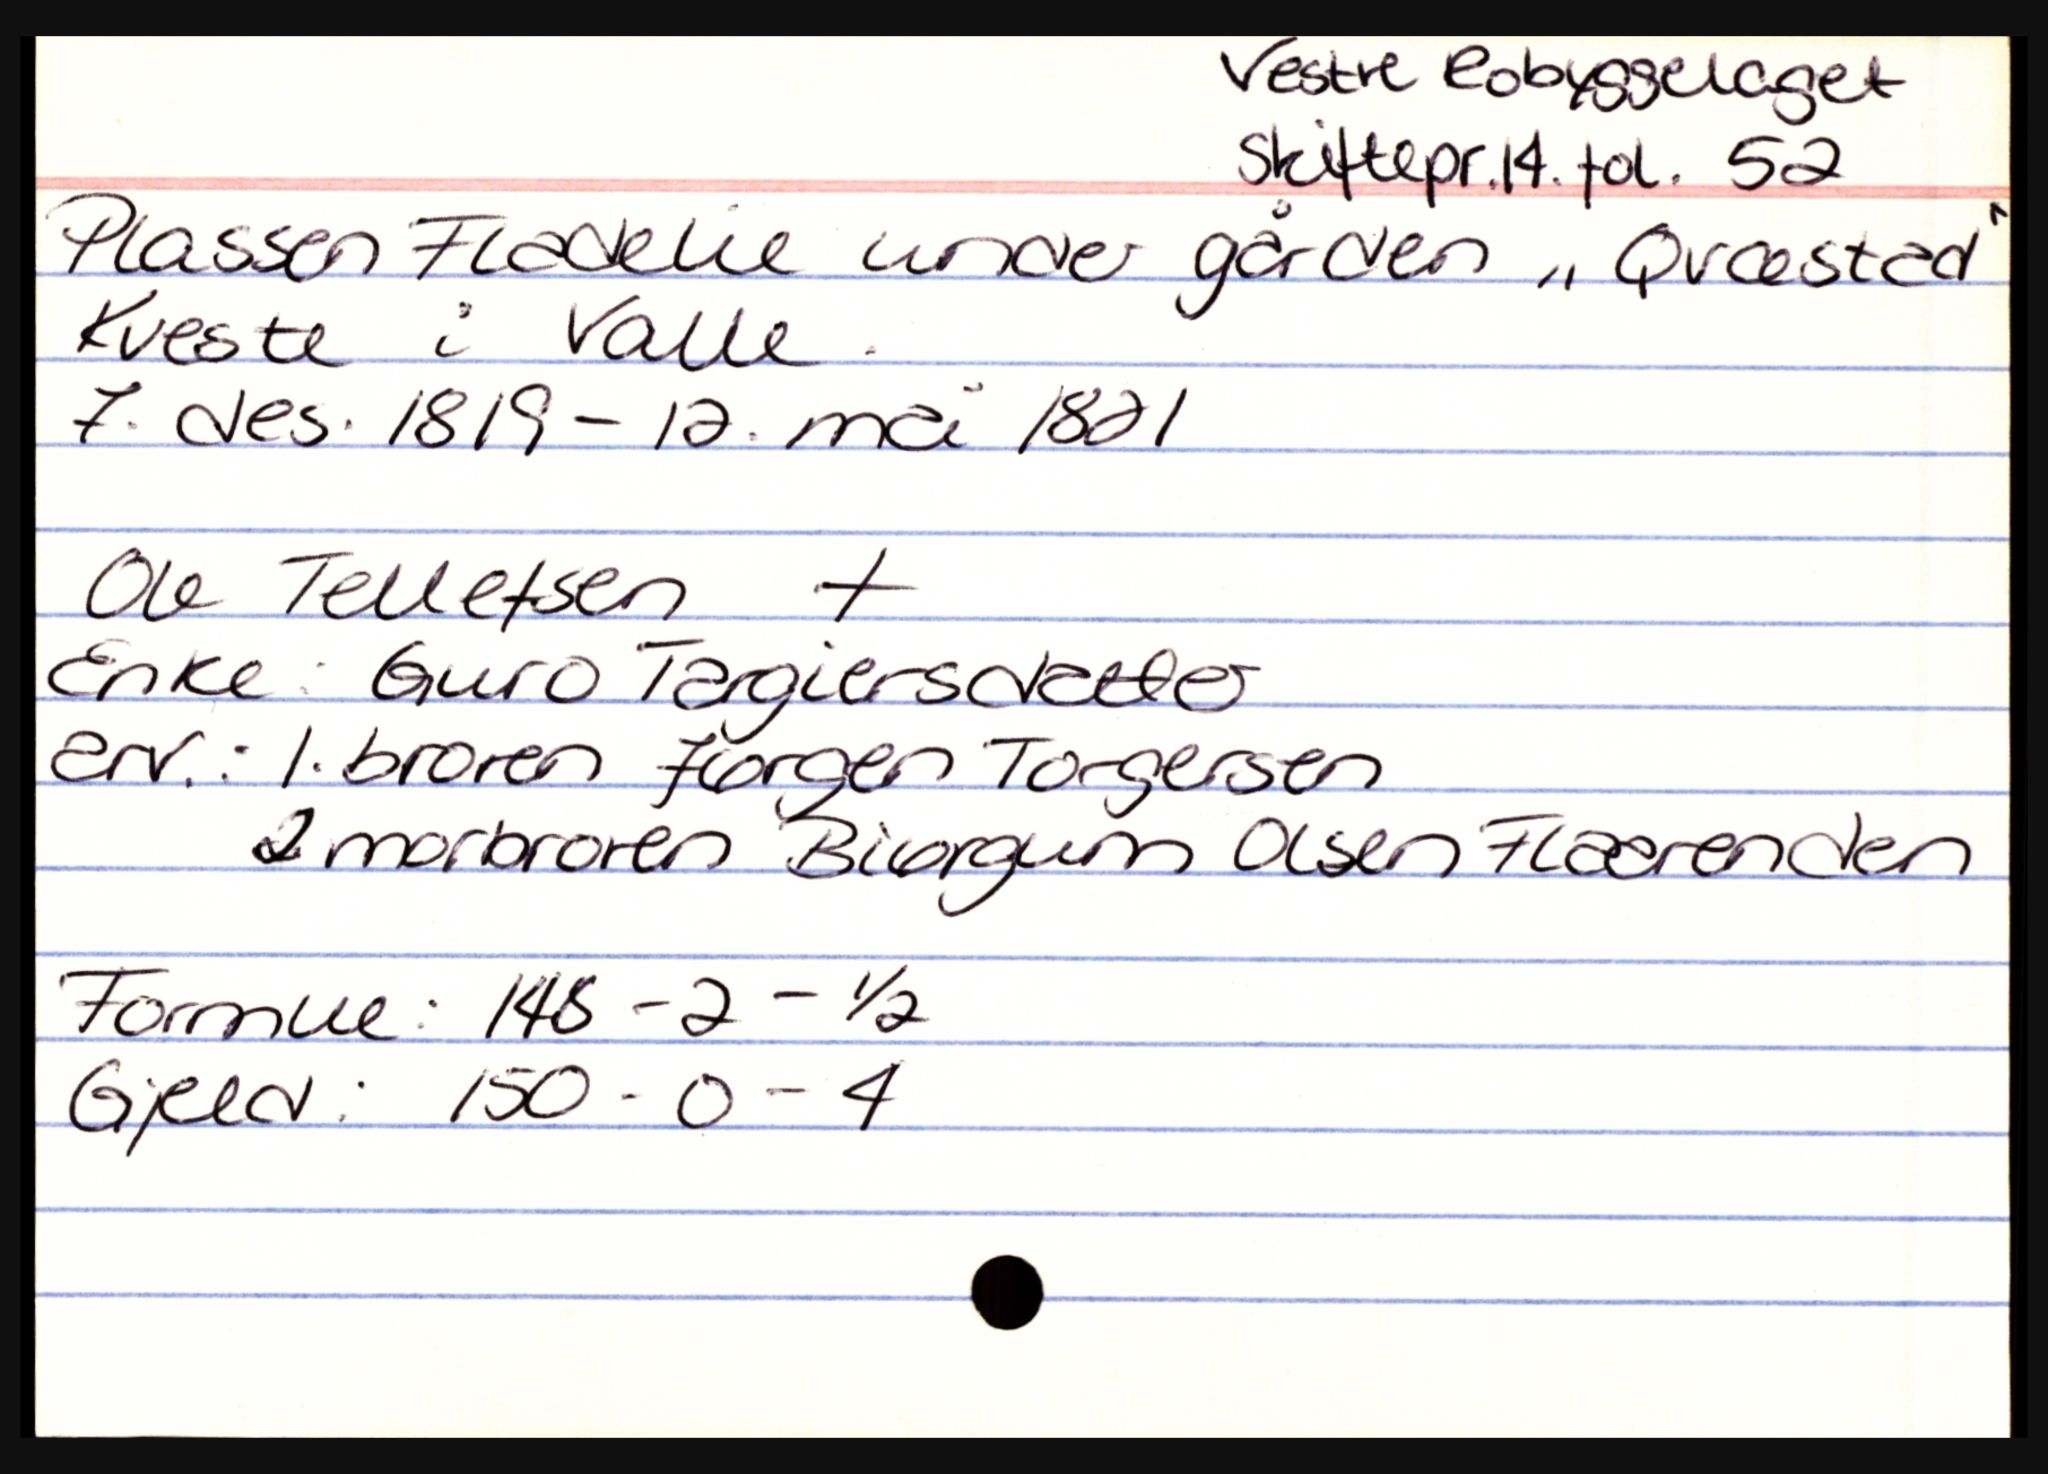 Vestre Robyggelaget
Skiftepr. 14. fol. 52
Plassen Fladelie under gården „Qvæstad"
Kveste i Valle.
7. des. 1819 - 12. mai 1821
Ole Tellefsen +
Enke: Guro Targiersdatter
arv.: 1. broren Jørgen Torgersen
2 morbroren Biørgum Olsen Flaarenden
Formue: 148 - 2 - 1/2
Gjeld: 150 - 0 - 4